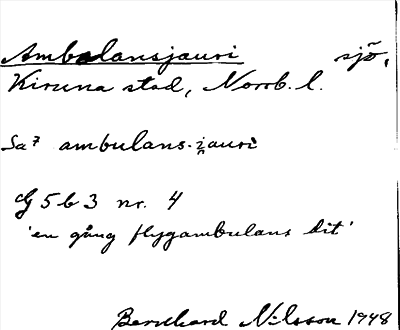 Ambulansjauri sjö,
Kiruna stad, Norrb. l.
Sa7 ambulans-i̯auri
G 5 b 3 nr. 4
'en gång flygambulans dit'
Bernhard Nilsson 1948